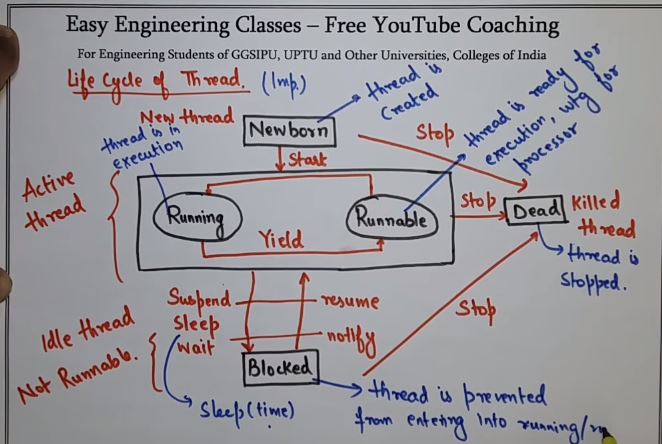 Easy Engineering Classes – Free YouTube Coaching
For Engineering Students of GGSIPU, UPTU and Other Universities, Colleges of India
Life Cycle of Thread. (Imp.)
thread is
created
New thread
Newborn
Stop
thread is ready for
execution, wtg for
processor
thread is in
execution
Start
Active
thread
Running
Runnable
Yield
Stop
Dead
Killed
thread
thread is
stopped.
Suspend
resume
Sleep
wait
notify
Stop
Idle thread
Not Runnable.
Blocked
Sleep(time)
thread is prevented
from entering into running/